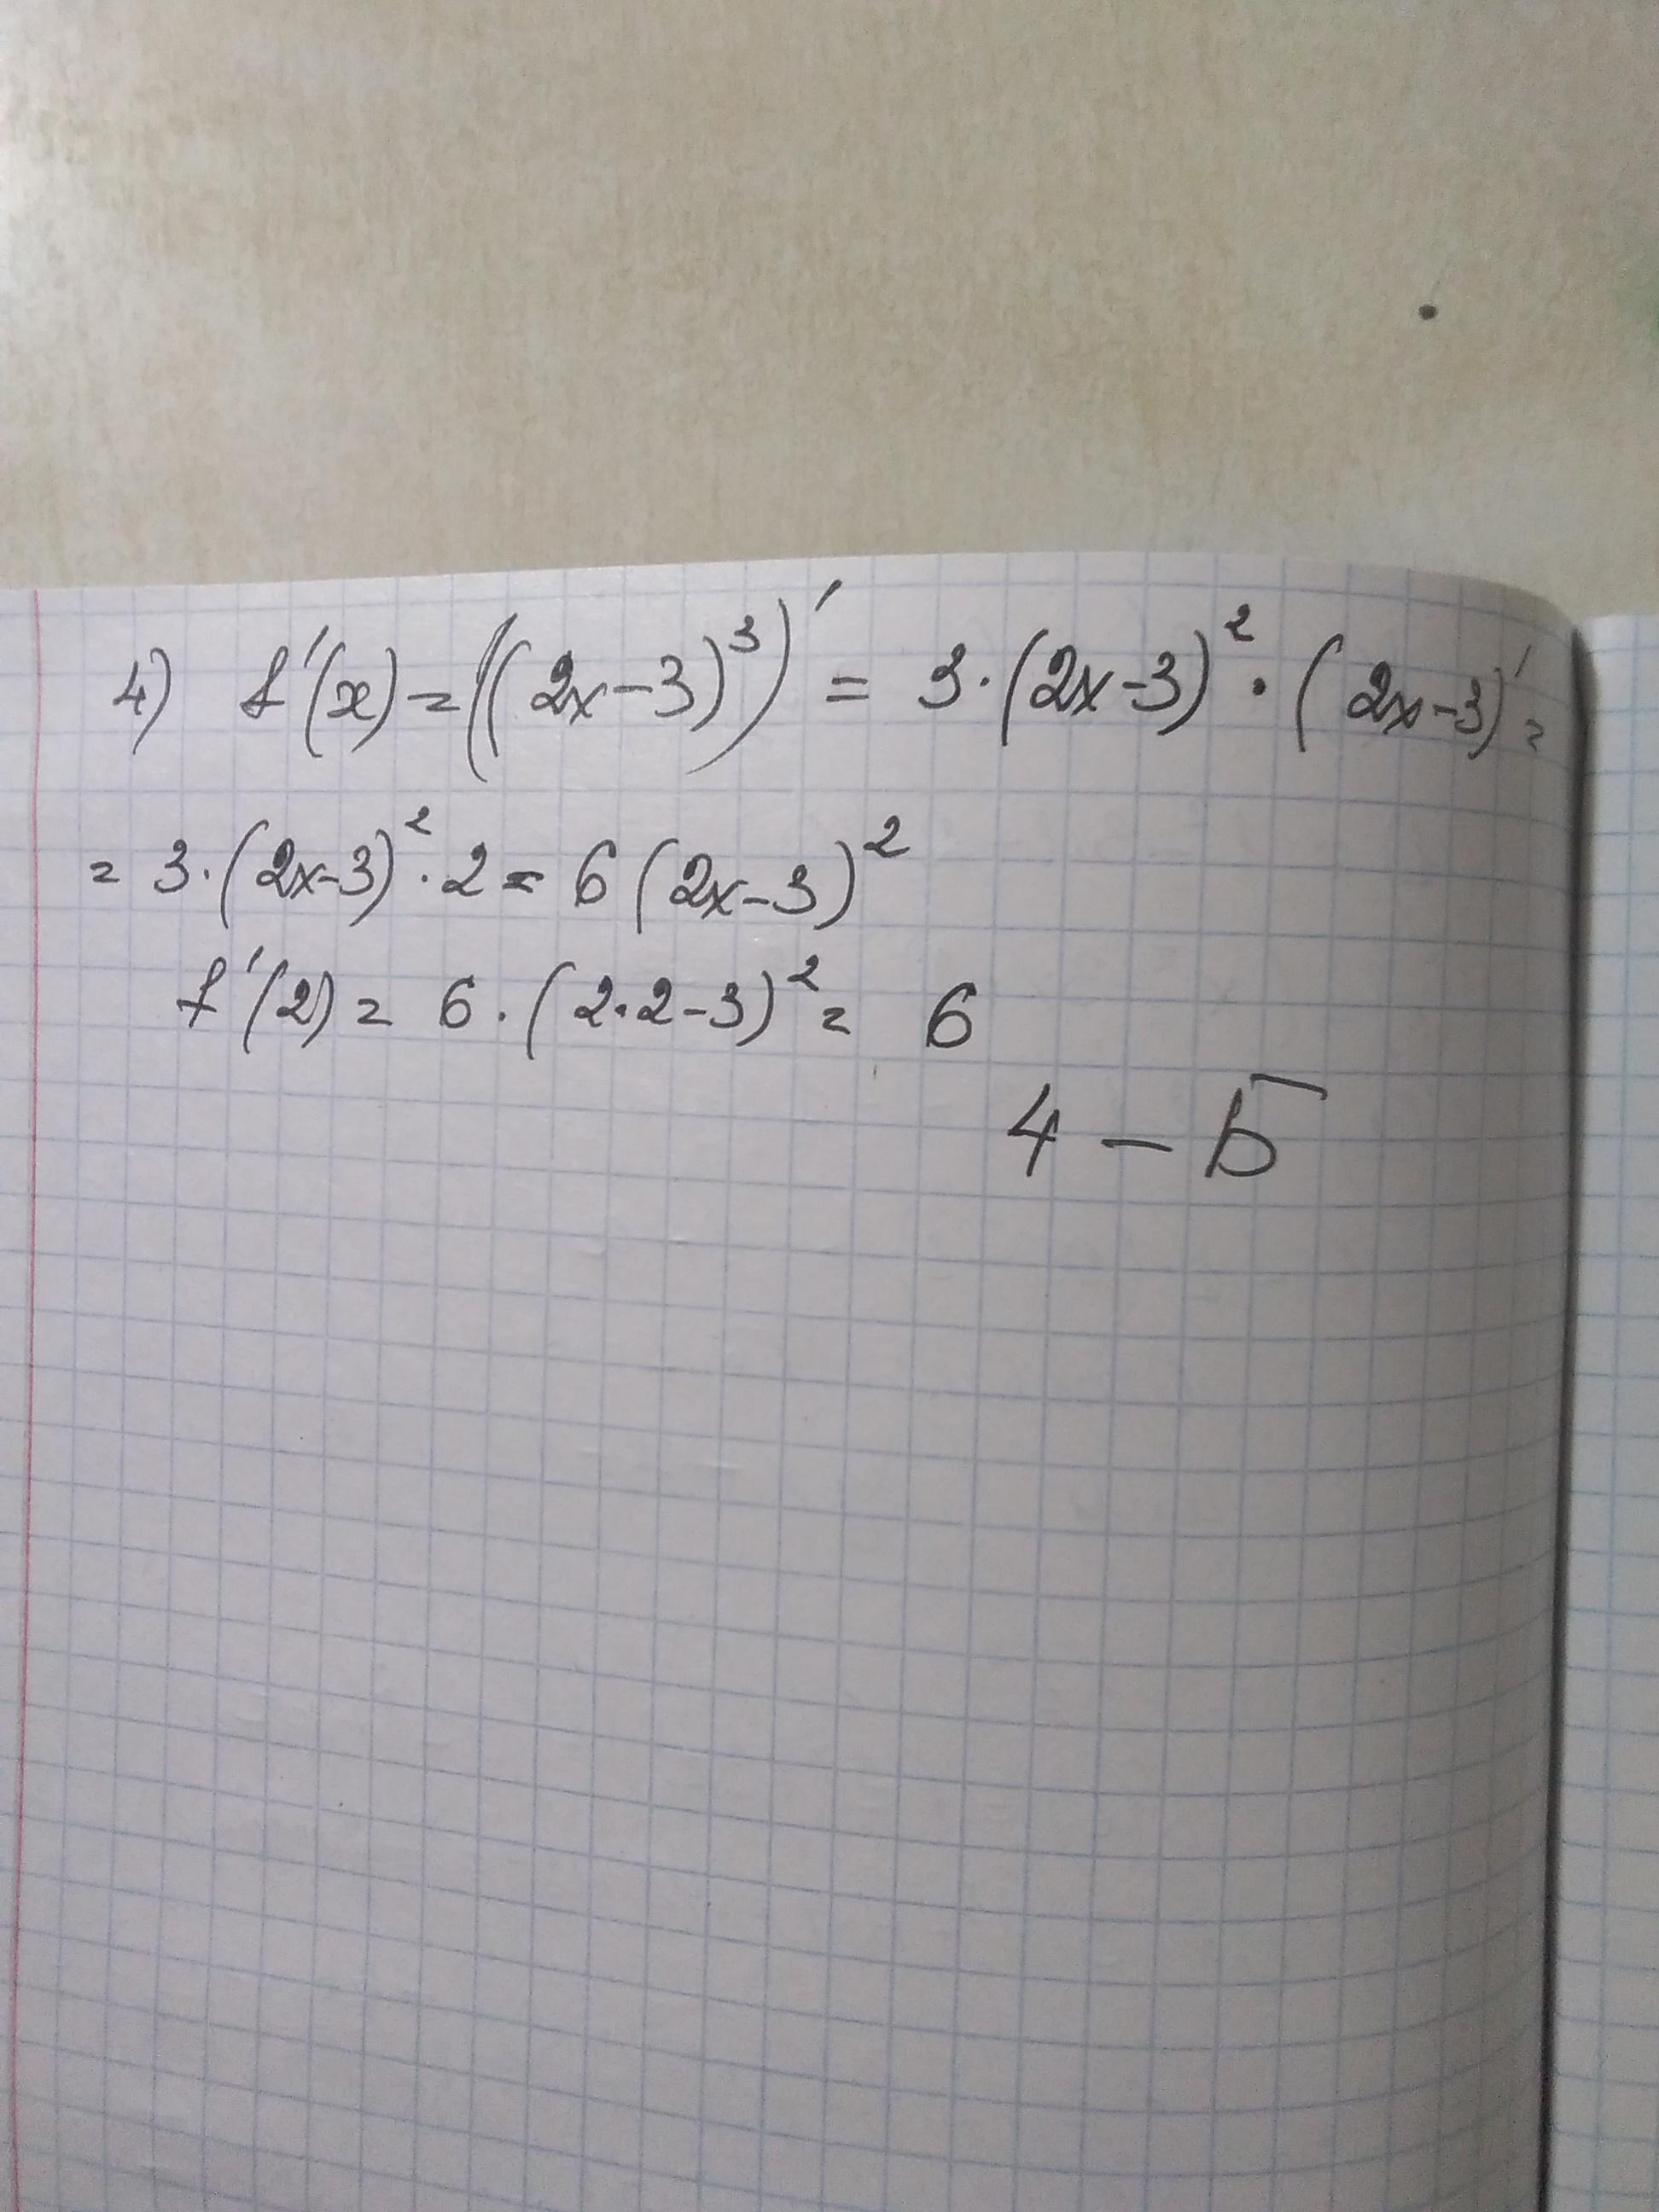 4) f'(x) = ((2x-3)³)' = 3·(2x-3)²·(2x-3)' =
= 3·(2x-3)²·2 = 6(2x-3)²
f'(2) = 6·(2·2-3)² = 6
4 – Б